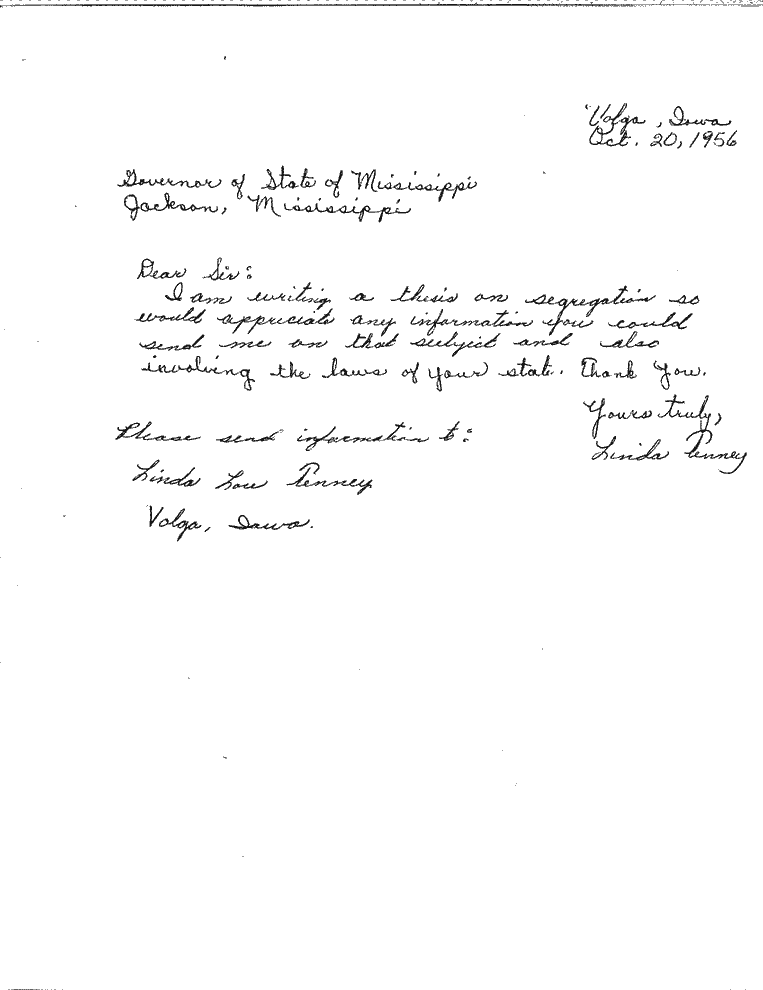 Volga, Iowa
Oct. 20, 1956
Governor of State of Mississippi
Jackson, Mississippi
Dear Sir:
I am writing a thesis on segregation so
would appreciate any information you could
send me on that subject and also
involving the laws of your state. Thank You.
Yours truly,
Linda Penney
Please send information to:
Linda Lou Penney
Volga, Iowa.